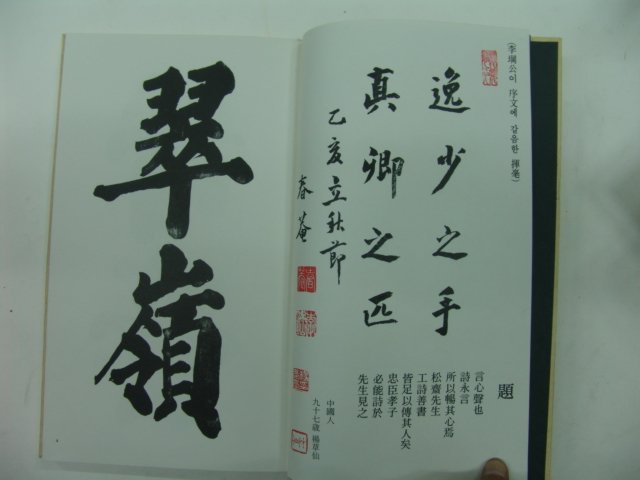 翠嶺
(李堈公이 序文에 갈음한 揮毫)
逸少之手
真卿之匹
乙亥立秋節
春菴
題
言心聲也
詩永言
所以暢其心焉
松齋先生
工詩善書
皆足以傳其人矣
忠臣孝子
必能詩於
先生見之
中國人
九十七歲 楊草仙